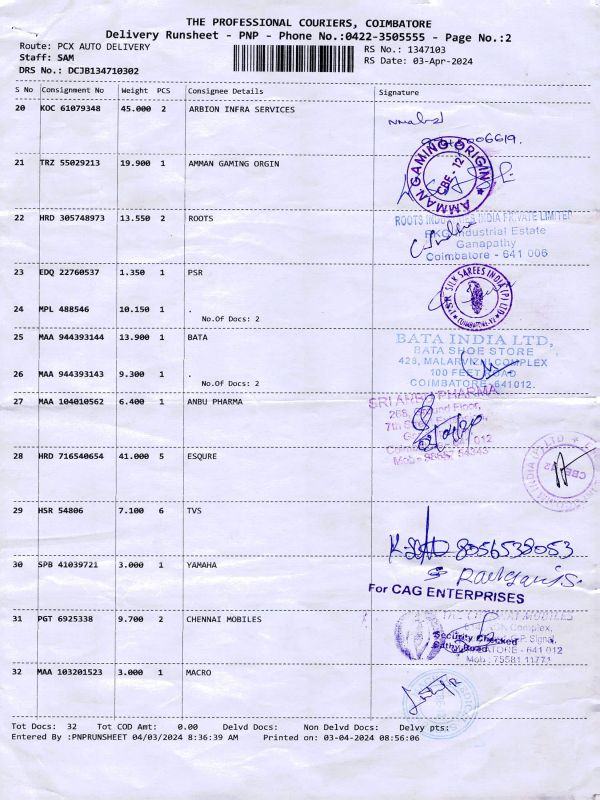 THE PROFESSIONAL COURIERS, COIMBATORE
Delivery Runsheet - PNP - Phone No.:0422-3505555 - Page No.:2
Route: PCX AUTO DELIVERY RS No.: 1347103
Staff: SAM RS Date: 03-Apr-2024
DRS No.: DCJB134710302
S No Consignment No Weight PCS Consignee Details Signature
20 KOC 61079348 45.000 2 ARBION INFRA SERVICES
21 TRZ 55029213 19.900 1 AMMAN GAMING ORGIN
AMMAN GAMING ORIGIN
CBE - 12
22 HRD 305748973 13.550 2 ROOTS
ROOTS INDUSTRIES INDIA PRIVATE LIMITED
Industrial Estate
Ganapathy
Coimbatore - 641 006
23 EDQ 22760537 1.350 1 PSR
PSR SILK SAREES INDIA (P) LTD
24 MPL 488546 10.150 1 .
No.Of Docs: 2
25 MAA 944393144 13.900 1 BATA
BATA INDIA LTD,
BATA SHOE STORE
428, MALARVIZHI COMPLEX
100 FEET ROAD
COIMBATORE-641012.
26 MAA 944393143 9.300 1 .
No.Of Docs: 2
27 MAA 104010562 6.400 1 ANBU PHARMA
SRI ANBU PHARMA
28 HRD 716540654 41.000 5 ESQURE
29 HSR 54806 7.100 6 TVS
8056538053
30 SPB 41039721 3.000 1 YAMAHA
For CAG ENTERPRISES
31 PGT 6925338 9.700 2 CHENNAI MOBILES
THE CHENNAI MOBILES
Complex,
Signal,
Security Checked
Sathy Road
COIMBATORE - 641 012
Mob : 75581 11771
32 MAA 103201523 3.000 1 MACRO
Tot Docs: 32 Tot COD Amt: 0.00 Delvd Docs: Non Delvd Docs: Delvy pts:
Entered By :PNPRUNSHEET 04/03/2024 8:36:39 AM Printed on: 03-04-2024 08:56:06